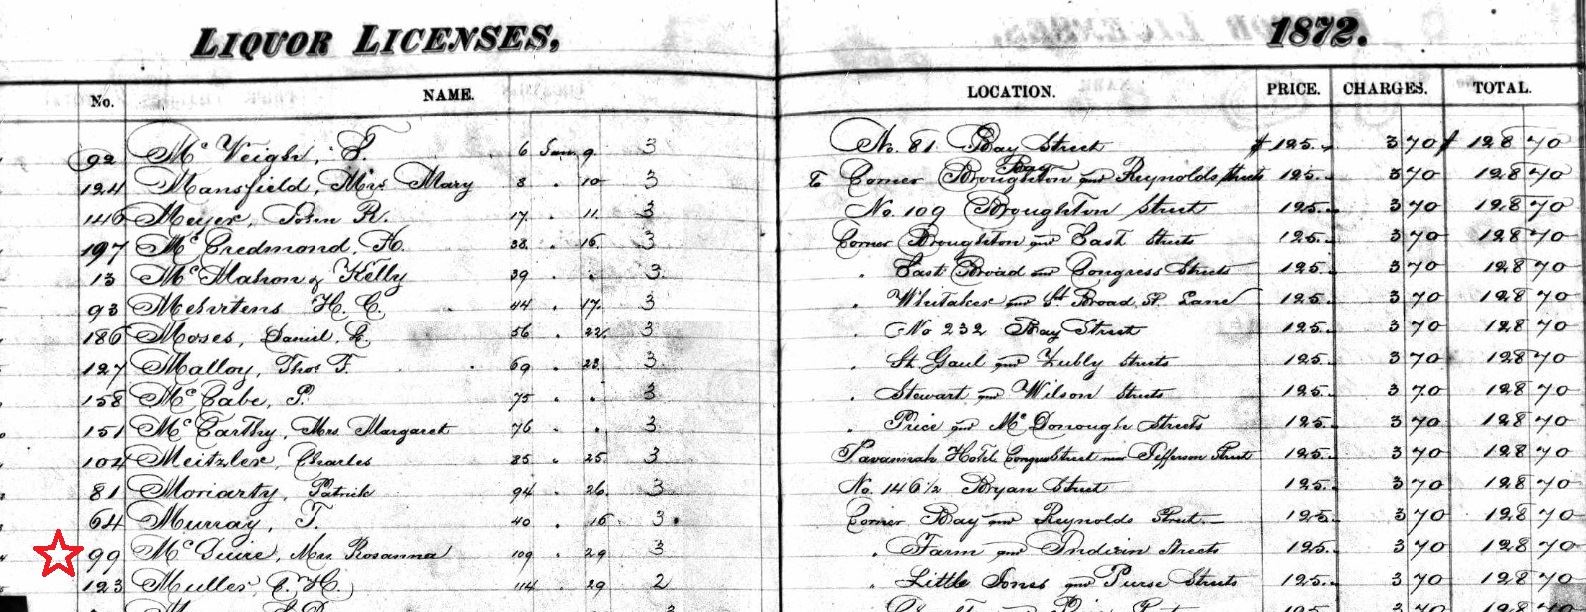 LIQUOR LICENSES, 1872.
No. NAME. LOCATION. PRICE. CHARGES. TOTAL.
92 McVeigh, F. 6 Jan. 9. 3 No. 81 Bay Street $125. 3 70 $128 70
124 Mansfield, Mrs Mary 8 . 10 3 Corner Broughton Bay and Reynolds Streets 125. 3 70 128 70
146 Meyer, John R. 17. . 11. 3 No. 109 Broughton Street 125. 3 70 128 70
197 McCredmond, H. 38. . 16. 3 Corner Broughton and East Streets 125. 3 70 128 70
13 McMahon & Kelly 39. . . 3 . East Broad and Congress Streets 125. 3 70 128 70
93 Mehrtens H. C. 44 . 17. 3 . Whitaker and St Broad St. Lane 125. 3 70 128 70
186 Moses, Daniel E. 56 . 22. 3 . No 232 Bay Street 125. 3 70 128 70
127 Malloy, Thos. F. 69 . 23. 3 . St. Gaul and Zubly Streets 125. 3 70 128 70
158 McCabe, P. 75 . . 3 . Stewart and Wilson Streets 125. 3 70 128 70
151 McCarthy, Mrs. Margaret 76 . . 3 . Price and McDonough Streets 125. 3 70 128 70
104 Meitzler, Charles 85 . 25. 3 Savannah Hotel Congress Street near Jefferson Street 125. 3 70 128 70
81 Moriarty, Patrick 94 . 26. 3 No. 146 1/2 Bryan Street 125. 3 70 128 70
64 Murray, T. 40 . 16. 3. Corner Bay and Reynolds Street 125. 3 70 128 70
99 McGuire, Mrs. Rosanna 109 . 29 3 . Farm and Indian Streets 125. 3 70 128 70
123 Muller, C. H. 114 . 29 2 . Little Jones and Purse Streets 125. 3 70 128 70